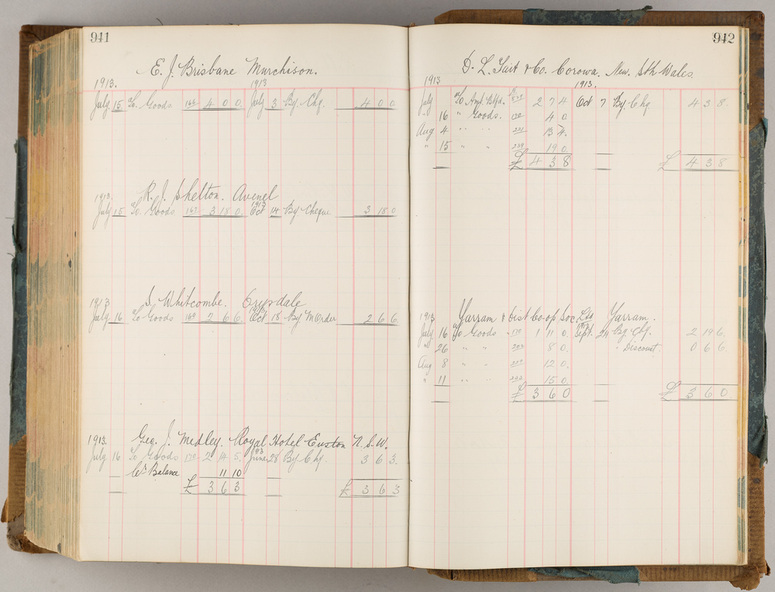 941
E. J. Brisbane Murchison.
1913. 1913
July 15 To Goods 4 0 0 July 3 By Chq. 4 0 0
R. J. Shelton. Avenel
1913 1913
July 15 To Goods 3 18 0 Oct 14 By Cheque 3 18 0
S. Whitcombe.
1913
July 16 To Goods 2 6 6 Oct 18 By M Order 2 6 6
Geo. J. Medley. Royal Hotel Euston N.S.W.
1913
July 16 To Goods 2 14 5 June 28 By Chq. 3 6 3
Balance 11 10
£ 3 6 3 £ 3 6 3
942
D. L. Tait & Co. Corowa. New. Sth Wales
1913 1913.
July To Amt 2 7 4 Oct 7 By Chq 4 3 8
16 " Goods. 4 0
Aug 4 " "
" 15 19 0
£ 4 3 8 £ 4 3 8
Yarram & Dist Co-op Soc. Ltd Yarram.
1913
July 16 To Goods 1 11 0 Sept. 26 By Chq. 2 19 6
" 26 " " 8 0 " Discount 0 6 6
Aug 8 " " 12 0
" 11 " " 15 0
£ 3 6 0 £ 3 6 0